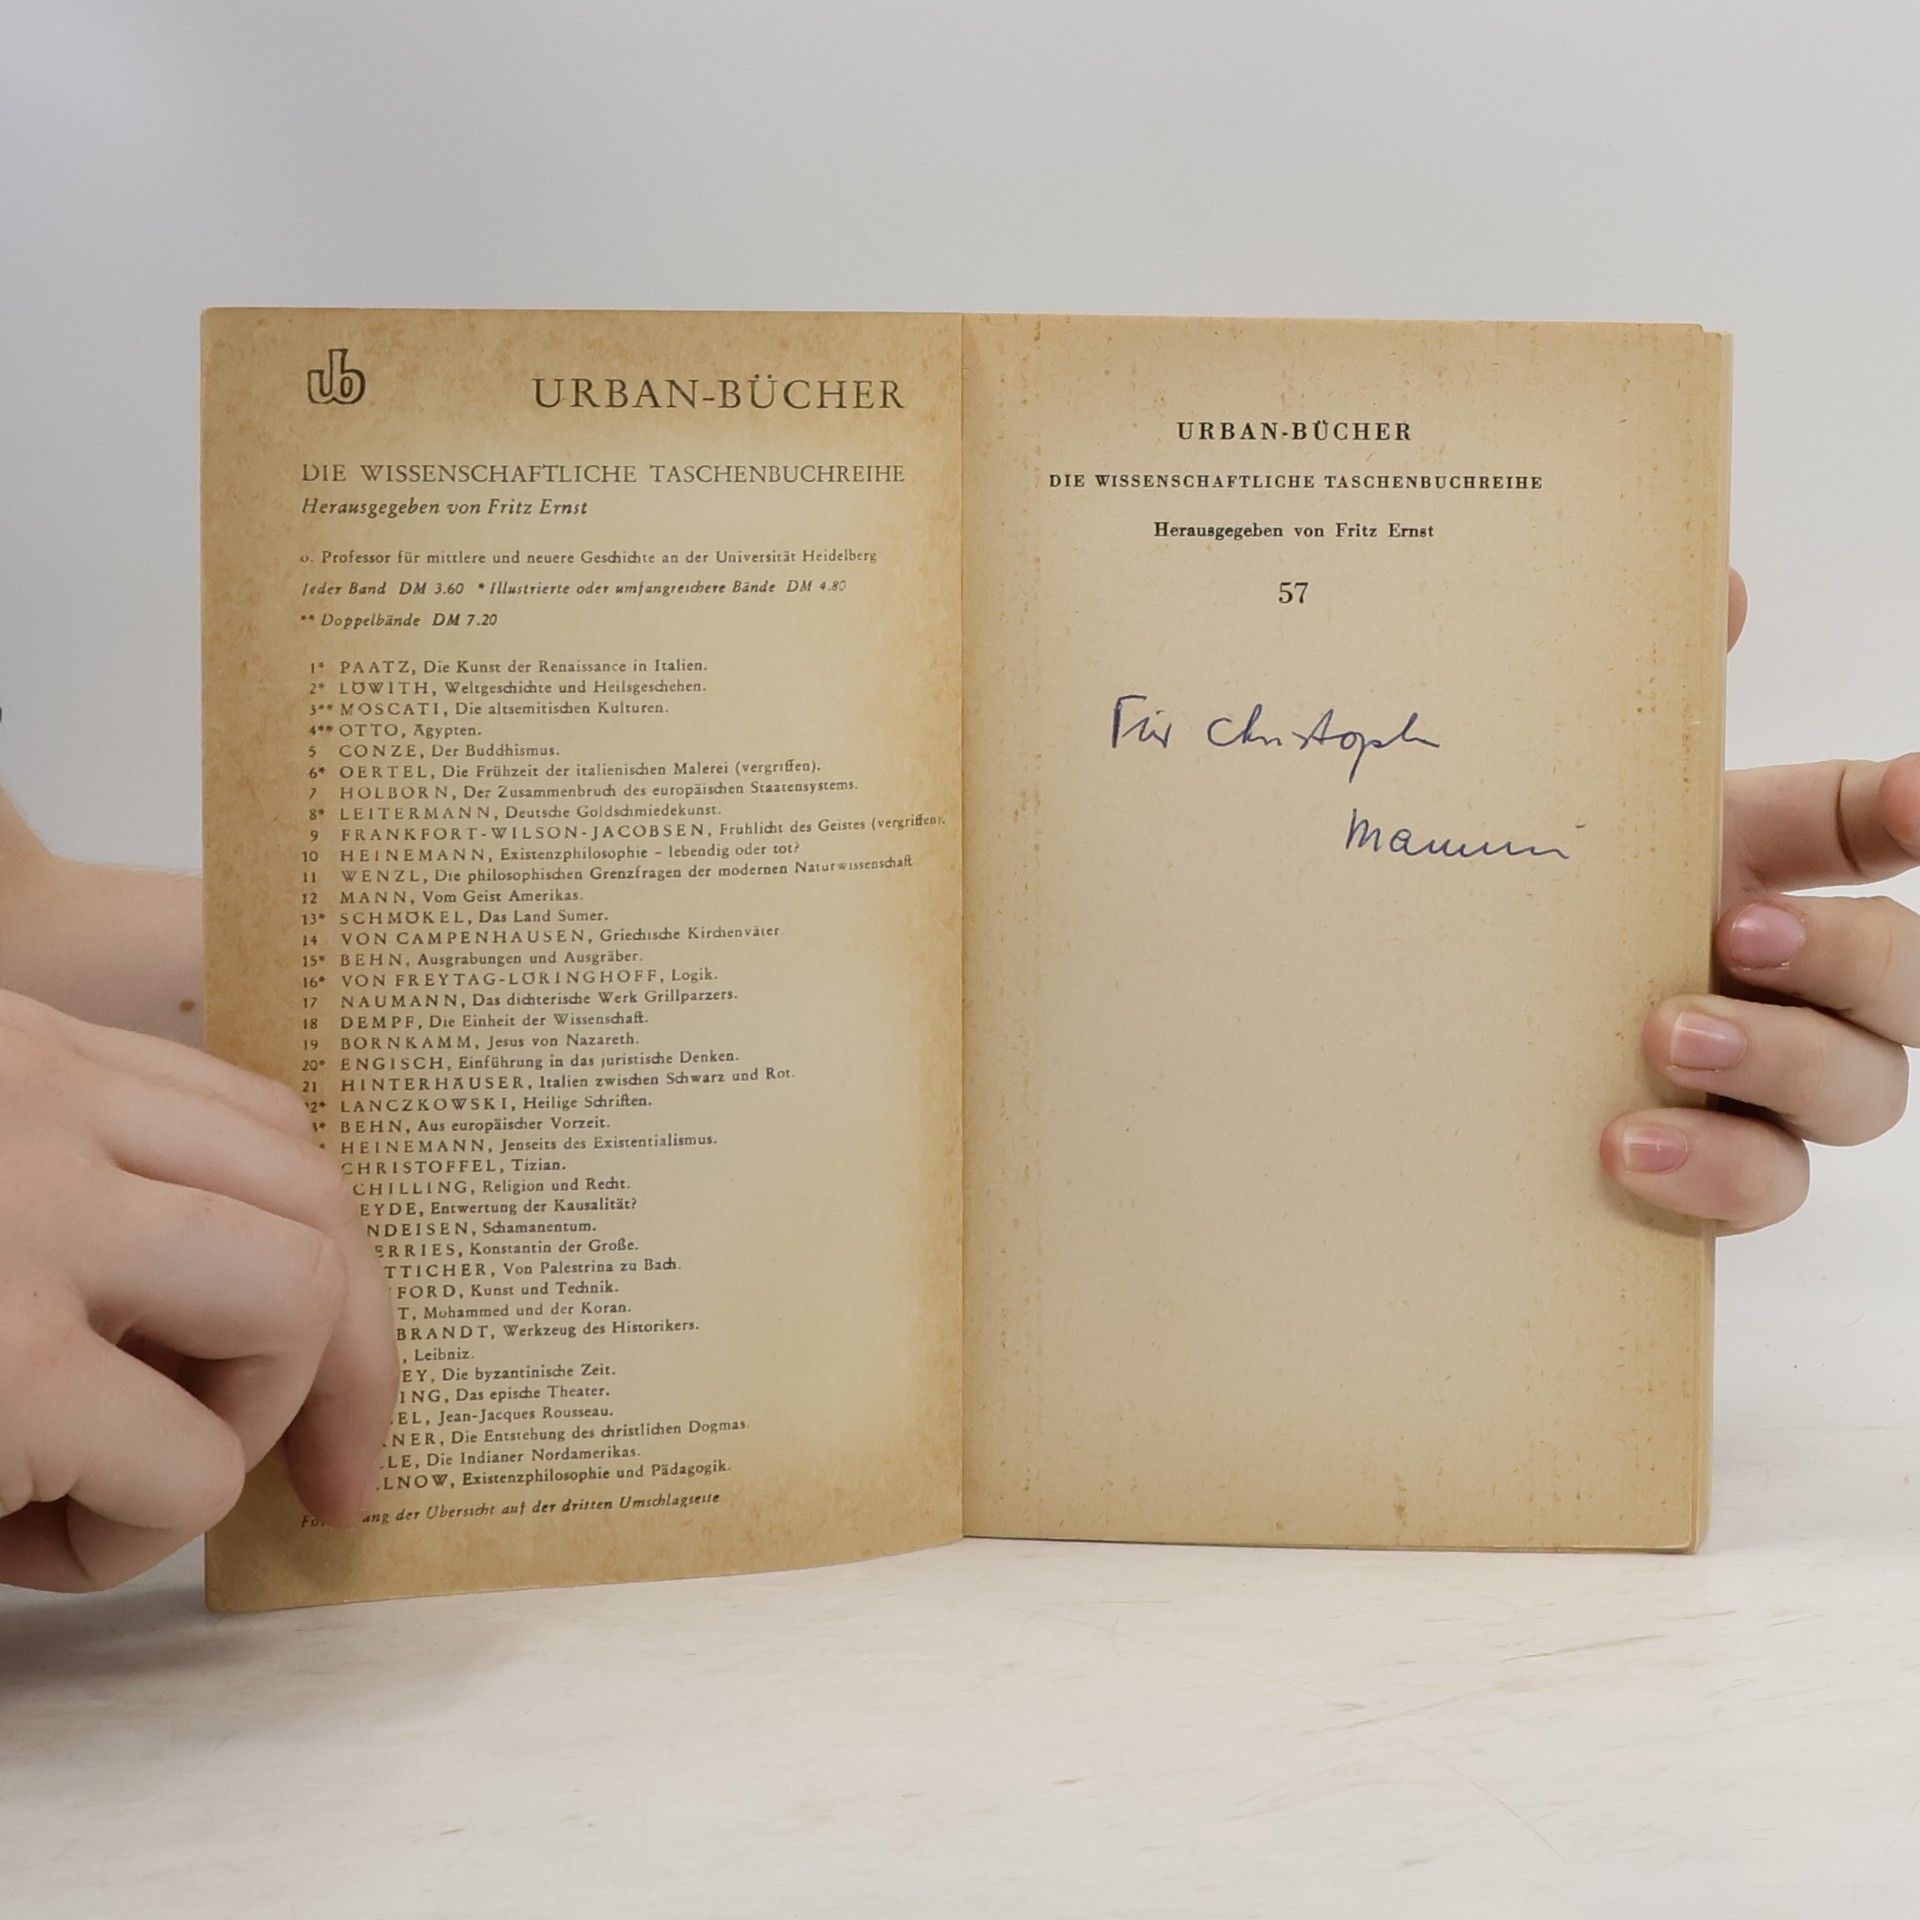 ub
URBAN-BÜCHER
DIE WISSENSCHAFTLICHE TASCHENBUCHREIHE
Herausgegeben von Fritz Ernst
o. Professor für mittlere und neuere Geschichte an der Universität Heidelberg
Jeder Band DM 3.60 * Illustrierte oder umfangreichere Bände DM 4.80
** Doppelbände DM 7.20
1* PAATZ, Die Kunst der Renaissance in Italien.
2* LÖWITH, Weltgeschichte und Heilsgeschehen.
3** MOSCATI, Die altsemitischen Kulturen.
4** OTTO, Ägypten.
5 CONZE, Der Buddhismus.
6* OERTEL, Die Frühzeit der italienischen Malerei (vergriffen).
7 HOLBORN, Der Zusammenbruch des europäischen Staatensystems.
8* LEITERMANN, Deutsche Goldschmiedekunst.
9 FRANKFORT-WILSON-JACOBSEN, Frühlicht des Geistes (vergriffen).
10 HEINEMANN, Existenzphilosophie – lebendig oder tot?
11 WENZL, Die philosophischen Grenzfragen der modernen Naturwissenschaft
12 MANN, Vom Geist Amerikas.
13* SCHMÖKEL, Das Land Sumer.
14 VON CAMPENHAUSEN, Griechische Kirchenväter
15* BEHN, Ausgrabungen und Ausgräber.
16* VON FREYTAG-LÖRINGHOFF, Logik.
17 NAUMANN, Das dichterische Werk Grillparzers.
18 DEMPF, Die Einheit der Wissenschaft.
19 BORNKAMM, Jesus von Nazareth.
20* ENGISCH, Einführung in das juristische Denken.
21 HINTERHÄUSER, Italien zwischen Schwarz und Rot.
2* LANCZKOWSKI, Heilige Schriften.
* BEHN, Aus europäischer Vorzeit.
* HEINEMANN, Jenseits des Existentialismus.
CHRISTOFFEL, Tizian.
CHILLING, Religion und Recht.
EYDE, Entwertung der Kausalität?
NDEISEN, Schamanentum.
ERRIES, Konstantin der Große.
TTICHER, Von Palestrina zu Bach.
FORD, Kunst und Technik.
T, Mohammed und der Koran.
BRANDT, Werkzeug des Historikers.
, Leibniz.
EY, Die byzantinische Zeit.
ING, Das epische Theater.
EL, Jean-Jacques Rousseau.
NER, Die Entstehung des christlichen Dogmas.
LE, Die Indianer Nordamerikas.
LNOW, Existenzphilosophie und Pädagogik.
ung der Übersicht auf der dritten Umschlagseite
URBAN-BÜCHER
DIE WISSENSCHAFTLICHE TASCHENBUCHREIHE
Herausgegeben von Fritz Ernst
57
Für Christoph